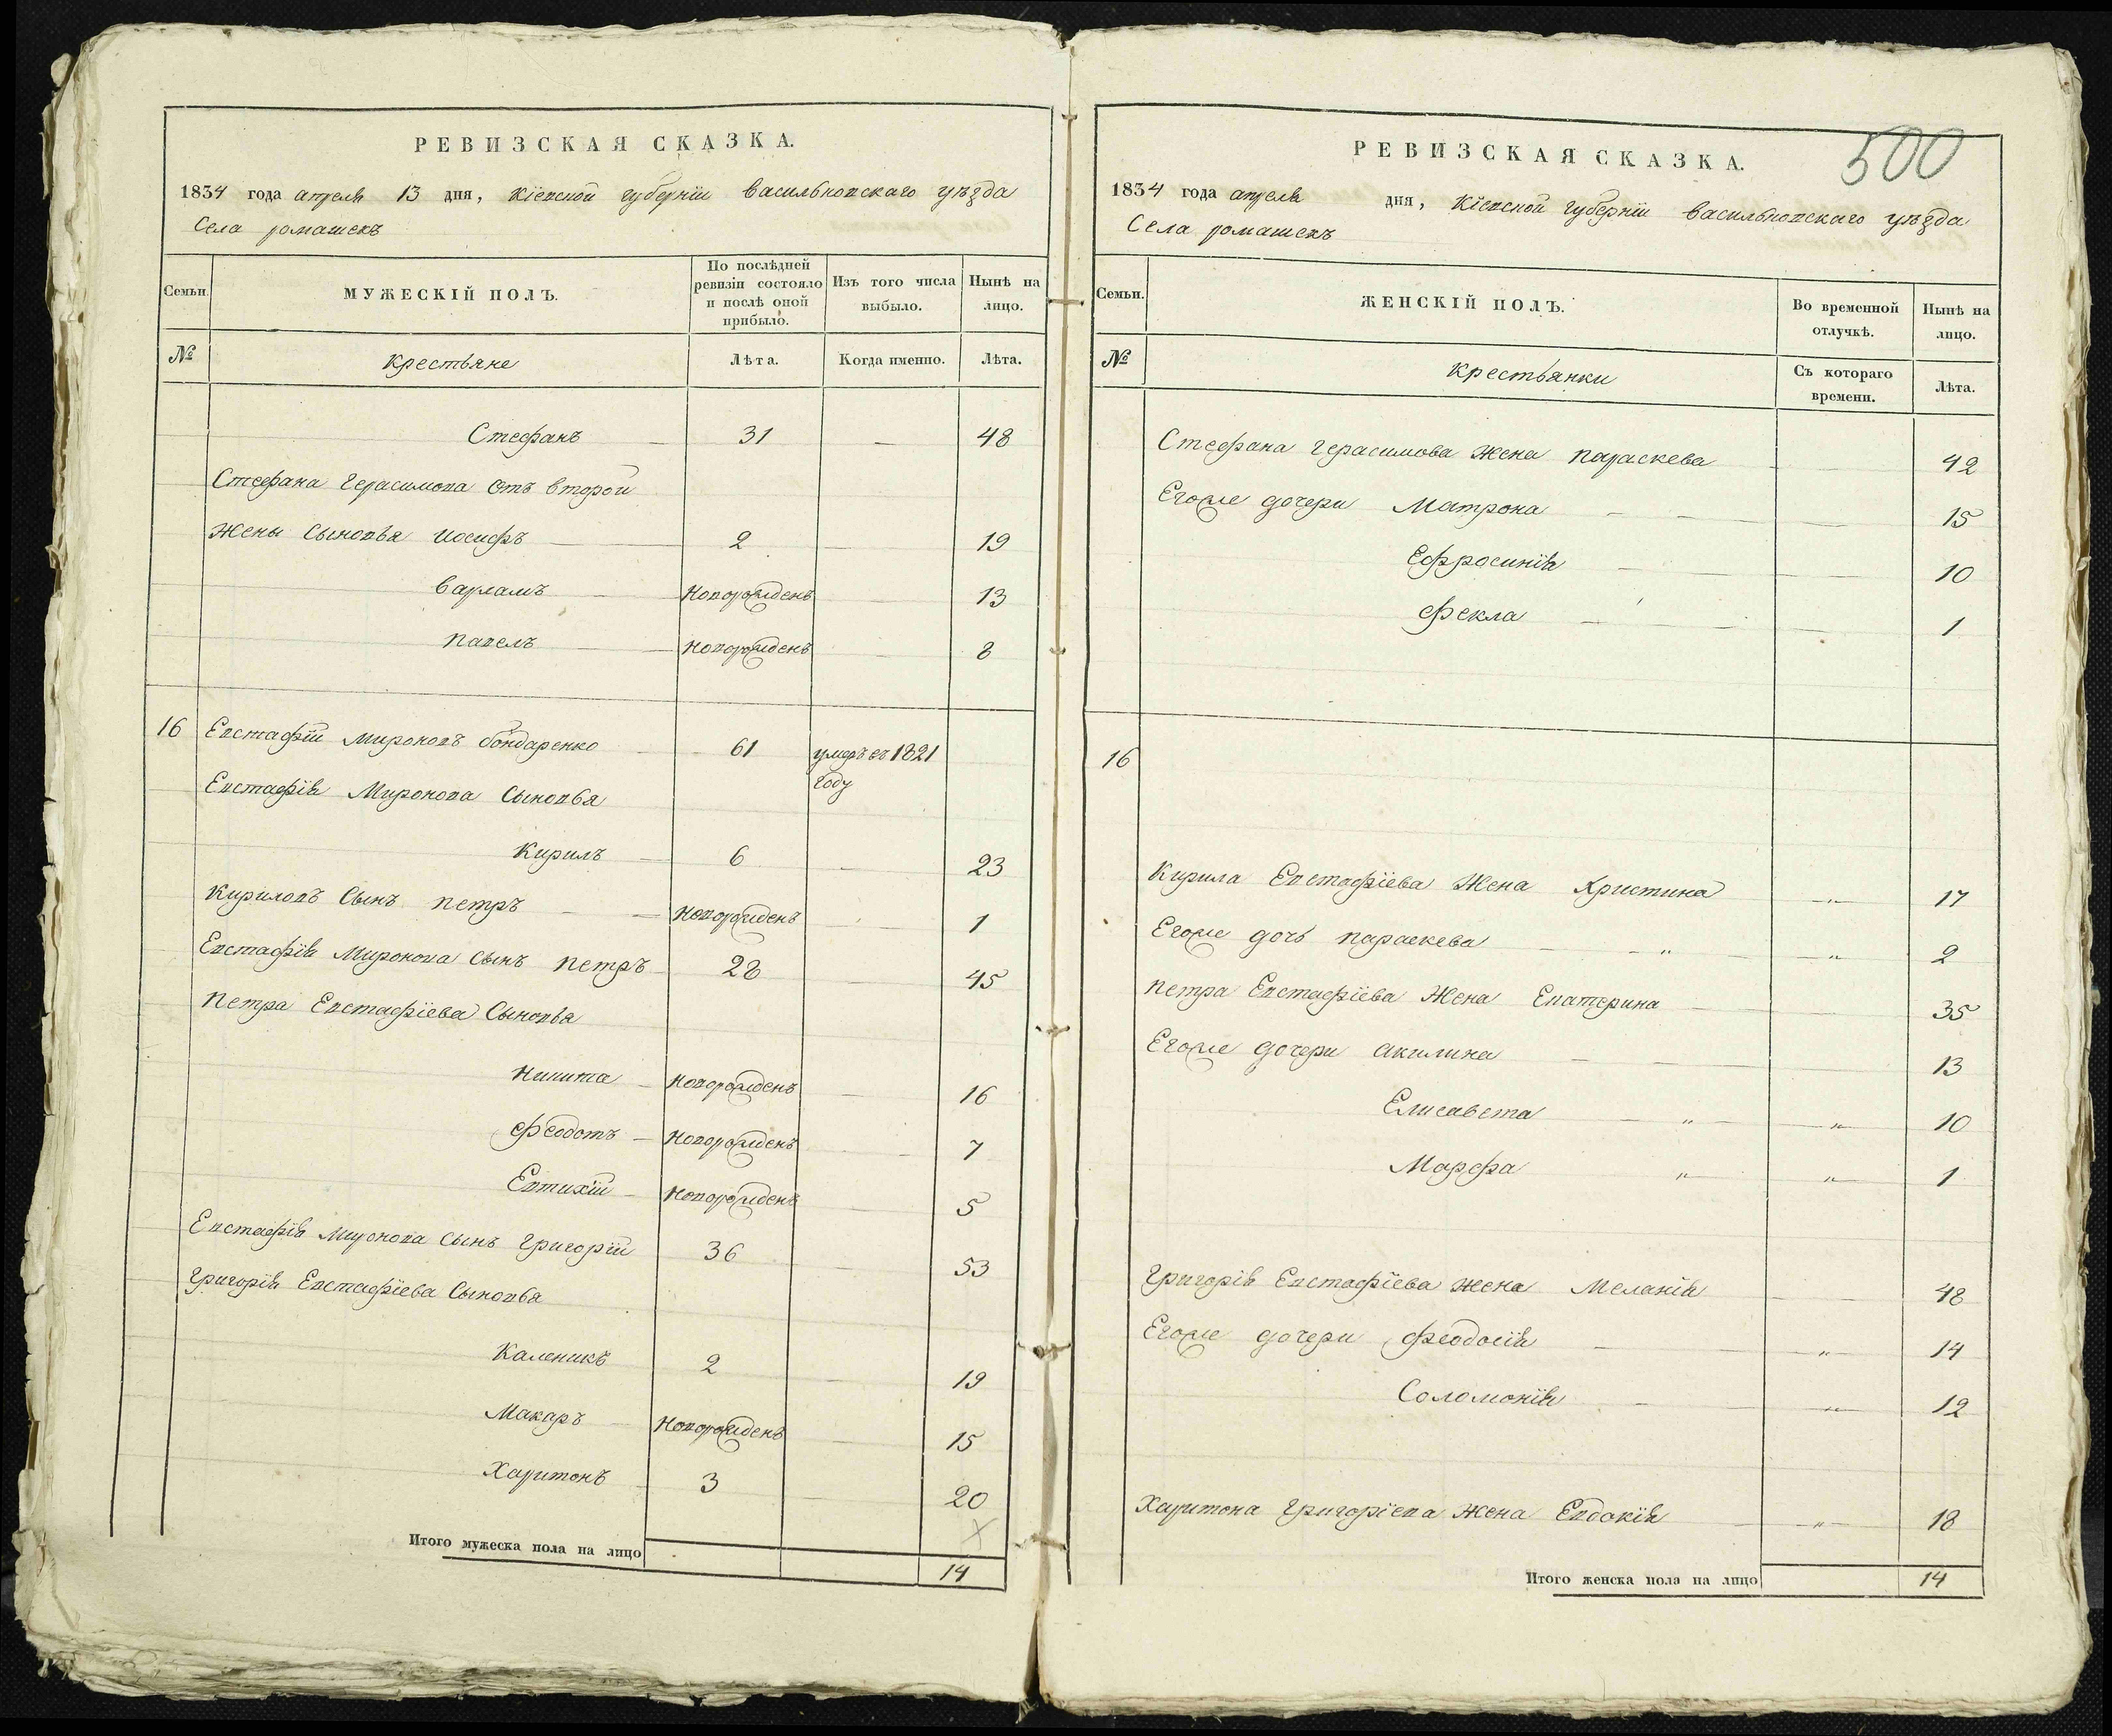 РЕВИЗСКАЯ СКАЗКА.
1834 года апреля 13 дня, Кіевской губерніи Васильковскаго уѣзда
Села ромашекъ
Семьи.
МУЖЕСКІЙ ПОЛЪ.
По послѣдней
ревизіи состояло
и послѣ оной
прибыло.
Изъ того числа
выбыло.
Нынѣ на
лицо.
№
Крестьяне
Лѣта.
Когда именно.
Лѣта.
Стефанъ 31 48
Стефана Герасимова отъ второй
жены сыновья Иосифъ 2 19
Варламъ новорожденъ 13
Павелъ новорожденъ 8
16 Евстафій Мироновъ бондаренко 61 умеръ въ 1821
году
Евстафія Миронова сыновья
Кирилъ 6 23
Кириловъ сынъ Петръ новорожденъ 1
Евстафія Миронова сынъ Петръ 28 45
Петра Евстафіева сыновья
Никита новорожденъ 16
Феодотъ новорожденъ 7
Евтихій новорожденъ 5
Евстафія Миронова сынъ Григорій 36 53
Григорія Евстафіева сыновья
Каленикъ 2 19
Макаръ новорожденъ 15
Харитонъ 3 20
Итого мужеска пола на лицо 14
500
РЕВИЗСКАЯ СКАЗКА.
1834 года апреля дня, Кіевской губерніи Васильковскаго уѣзда
Села ромашекъ
Семьи.
ЖЕНСКІЙ ПОЛЪ.
Во временной
отлучкѣ.
Нынѣ на
лицо.
№
Крестьянки
Съ котораго
времени.
Лѣта.
Стефана Герасимова жена Параскева 42
Егоже дочери Матрона 15
Ефросинія 10
Фекла 1
16
Кирила Евстафіева жена Христина " 17
Егоже дочь Параскева " " 2
Петра Евстафіева жена Екатерина 35
Егоже дочери Акилина 13
Елисавета " " 10
Марфа " " 1
Григорія Евстафіева жена Меланія 48
Егоже дочери Феодосія " 14
Соломонія " 12
Харитона Григоріева жена Евдокія " 18
Итого женска пола на лицо 14